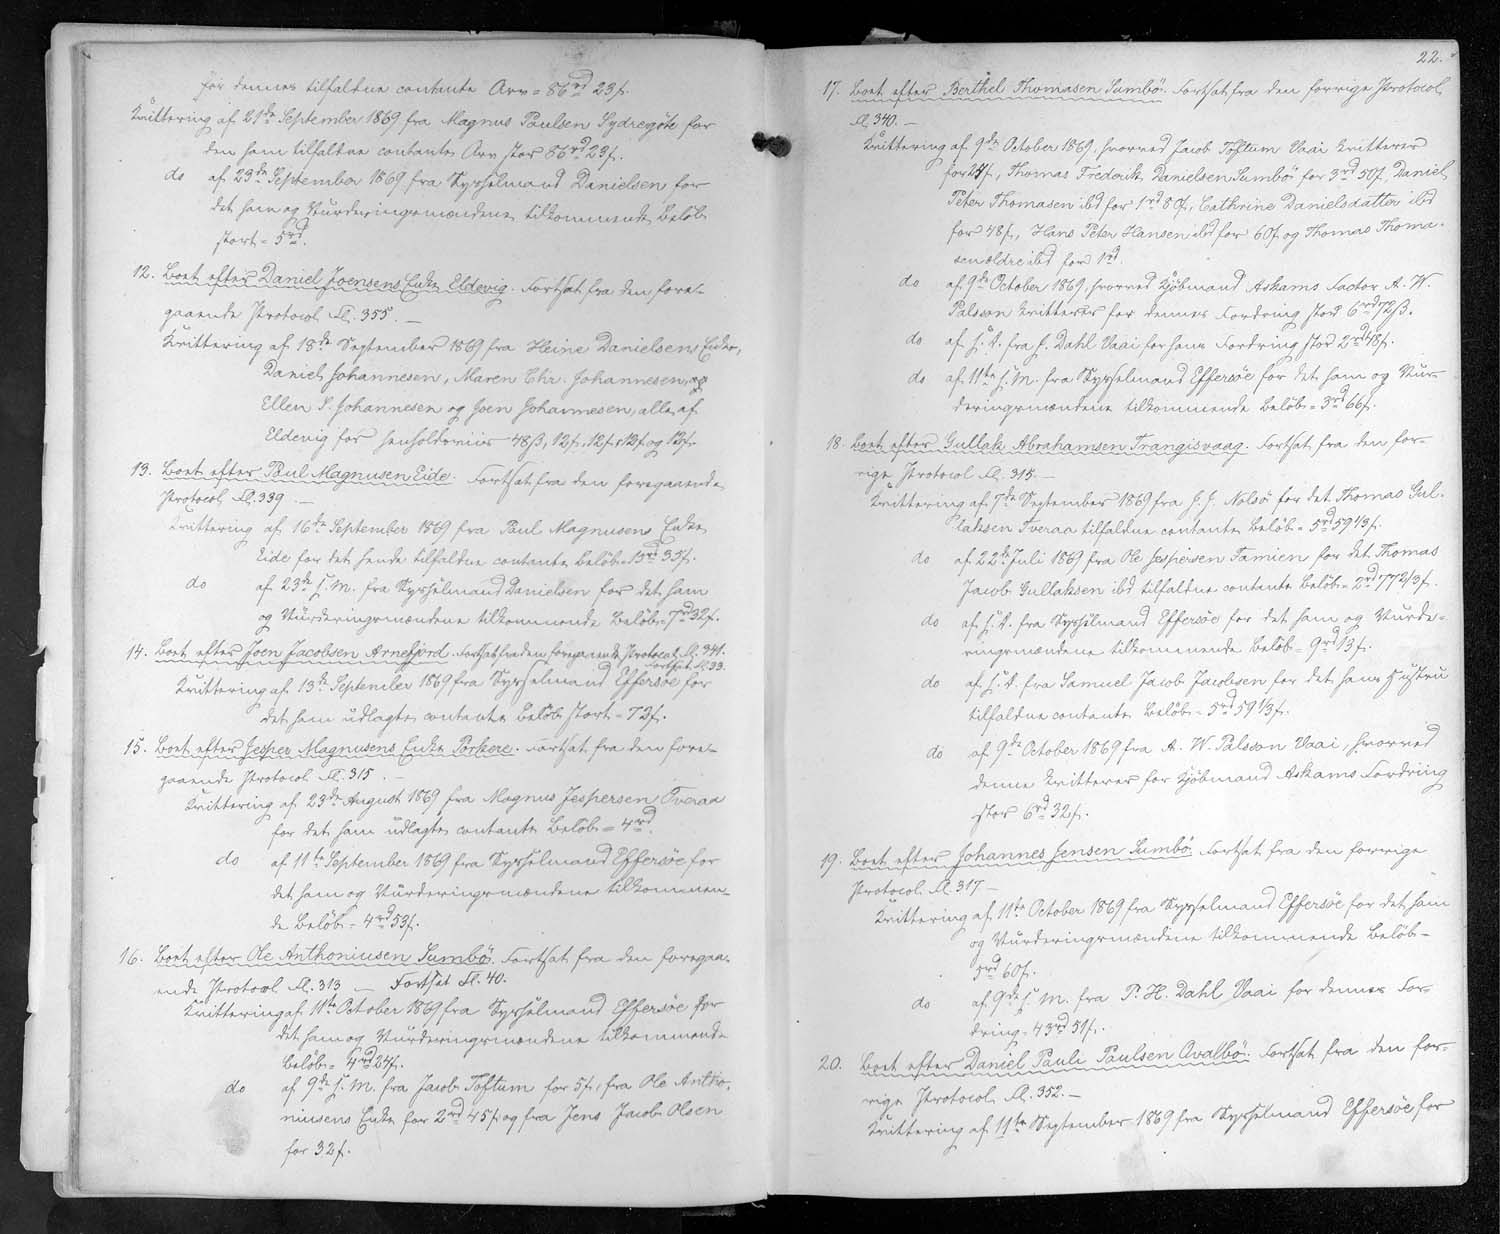 for dennes tilfaldne contante Arv = 86 rd 23 f.
Kvittering af 21de September 1869 fra Magnus Paulsen Sydregöte for
den ham tilfaldne contante Arv stor 86 rd 23 f.
do af 23de September 1869 fra Sysselmand Danielsen for
det ham og Vurderingsmændene tilkommende Beløb
stort = 5 rd.
12. Boet efter Daniel Joensens Enke Eldevig. Fortsat fra den fore-
gaaende Protocol Fl. 355. —
Kvittering af 18de September 1869 fra Heine Danielsens Enke,
Daniel Johannesen, Maren Chr. Johannesen,
Ellen S. Johannesen og Joen Johannesen, alle af
Eldevig for henholdsviis 48 ß, 12 f, 12 f, 12 f og 12 f.
13. Boet efter Poul Magnusen Eide. Fortsat fra den foregaaende
Protocol Fl. 339. —
Kvittering af 16de September 1869 fra Paul Magnusens Enke
Eide for det hende tilfaldne contante Beløb = 15 rd 35 f.
do af 23de s. M. fra Sysselmand Danielsen for det ham
og Vurderingsmændene tilkommende Beløb = 7 rd 32 f.
14. Boet efter Joen Jacobsen Arnefjord. Fortsat fra den foregaaende Protocol Fl. 341.
Fortsat Fl. 33.
Kvittering af 13de September 1869 fra Sysselmand Effersøe for
det ham udlagte contante Beløb stort = 72 f.
15. Boet efter Jesper Magnusens Enke Porkere. Fortsat fra den fore-
gaaende Protocol Fl. 315. —
Kvittering af 23de August 1869 fra Magnus Jespersen Tveraa
for det ham udlagte contante Beløb = 4 rd.
do af 11te September 1869 fra Sysselmand Effersöe for
det ham og Vurderingsmændene tilkommen-
de Beløb = 4 rd 53 f.
16. Boet efter Ole Anthoniusen Sumbö. Fortsat fra den foregaa-
ende Protocol Fl. 313 — Fortsat Fl. 40.
Kvittering af 11te October 1869 fra Sysselmand Effersöe for
det ham og Vurderingsmændene tilkommende
Beløb = 4 rd 24 f.
do af 9de s. M. fra Jacob Toftum for 5 f, fra Ole Antho-
niusens Enke for 2 rd 45 f og fra Jens Jacob Olsen
for 32 f.
22.
17. Boet efter Berthel Thomasen Sumbö. Fortsat fra den forrige Protocol
Fl. 340. —
Kvittering af 9de October 1869, hvorved Jacob Toftum Vaai kvitterer
for 27 f, Thomas Frederik Danielsen Sumbö for 3 rd 50 f, Daniel
Peter Thomasen ibd for 1 rd 80 f, Cathrine Danielsdatter ibd
for 48 f, Hans Peter Hansen ibd for 60 f og Thomas Thoma-
sen ældre ibd for 1 rd.
do af 9de October 1869, hvorved Kjöbmand Askams Factor A. W.
Palsson kvitterer for dennes Fordring stor 6 rd 72 ß.
do af s. D. fra P. Dahl Vaai for hans Fordring stor 2 rd 48 f.
do af 11te s. M. fra Sysselmand Effersöe for det ham og Vur-
deringsmændene tilkommende Beløb = 3 rd 66 f.
18. Boet efter Gullak Abrahamsen Trangisvaag. Fortsat fra den for-
rige Protocol Fl. 315. —
Kvittering af 7de September 1869 fra J. J. Nolsö for det Thomas Gul-
laksen Tveraa tilfaldne contante Beløb = 5 rd 59 1/3 f.
do af 22de Juli 1869 fra Ole Jespersen Famien for det Thomas
Jacob Gullaksen ibd tilfaldne contante Beløb = 2 rd 77 2/3 f.
do af s. D. fra Sysselmand Effersöe for det ham og Vurde-
ringsmændene tilkommende Beløb = 9 rd 13 f.
do af s. D. fra Samuel Jacob Jacobsen for det hans Hustru
tilfaldne contante Beløb = 5 rd 59 1/3 f.
do af 9de October 1869 fra A. W. Palsson Vaai, hvorved
denne kvitterer for Kjöbmand Askams Fordring
stor 6 rd 32 f.
19. Boet efter Johannes Jensen Sumbö. Fortsat fra den forrige
Protocol Fl. 317 —
Kvittering af 11te October 1869 fra Sysselmand Effersöe for det ham
og Vurderingsmændene tilkommende Beløb =
5 rd 60 f.
do af 9de s. M. fra P. H. Dahl Vaai for dennes For-
dring = 43 rd 51 f.
20. Boet efter Daniel Pauli Paulsen Qvalbö. Fortsat fra den for-
rige Protocol Fl. 352. —
Kvittering af 11te September 1869 fra Sysselmand Effersöe for